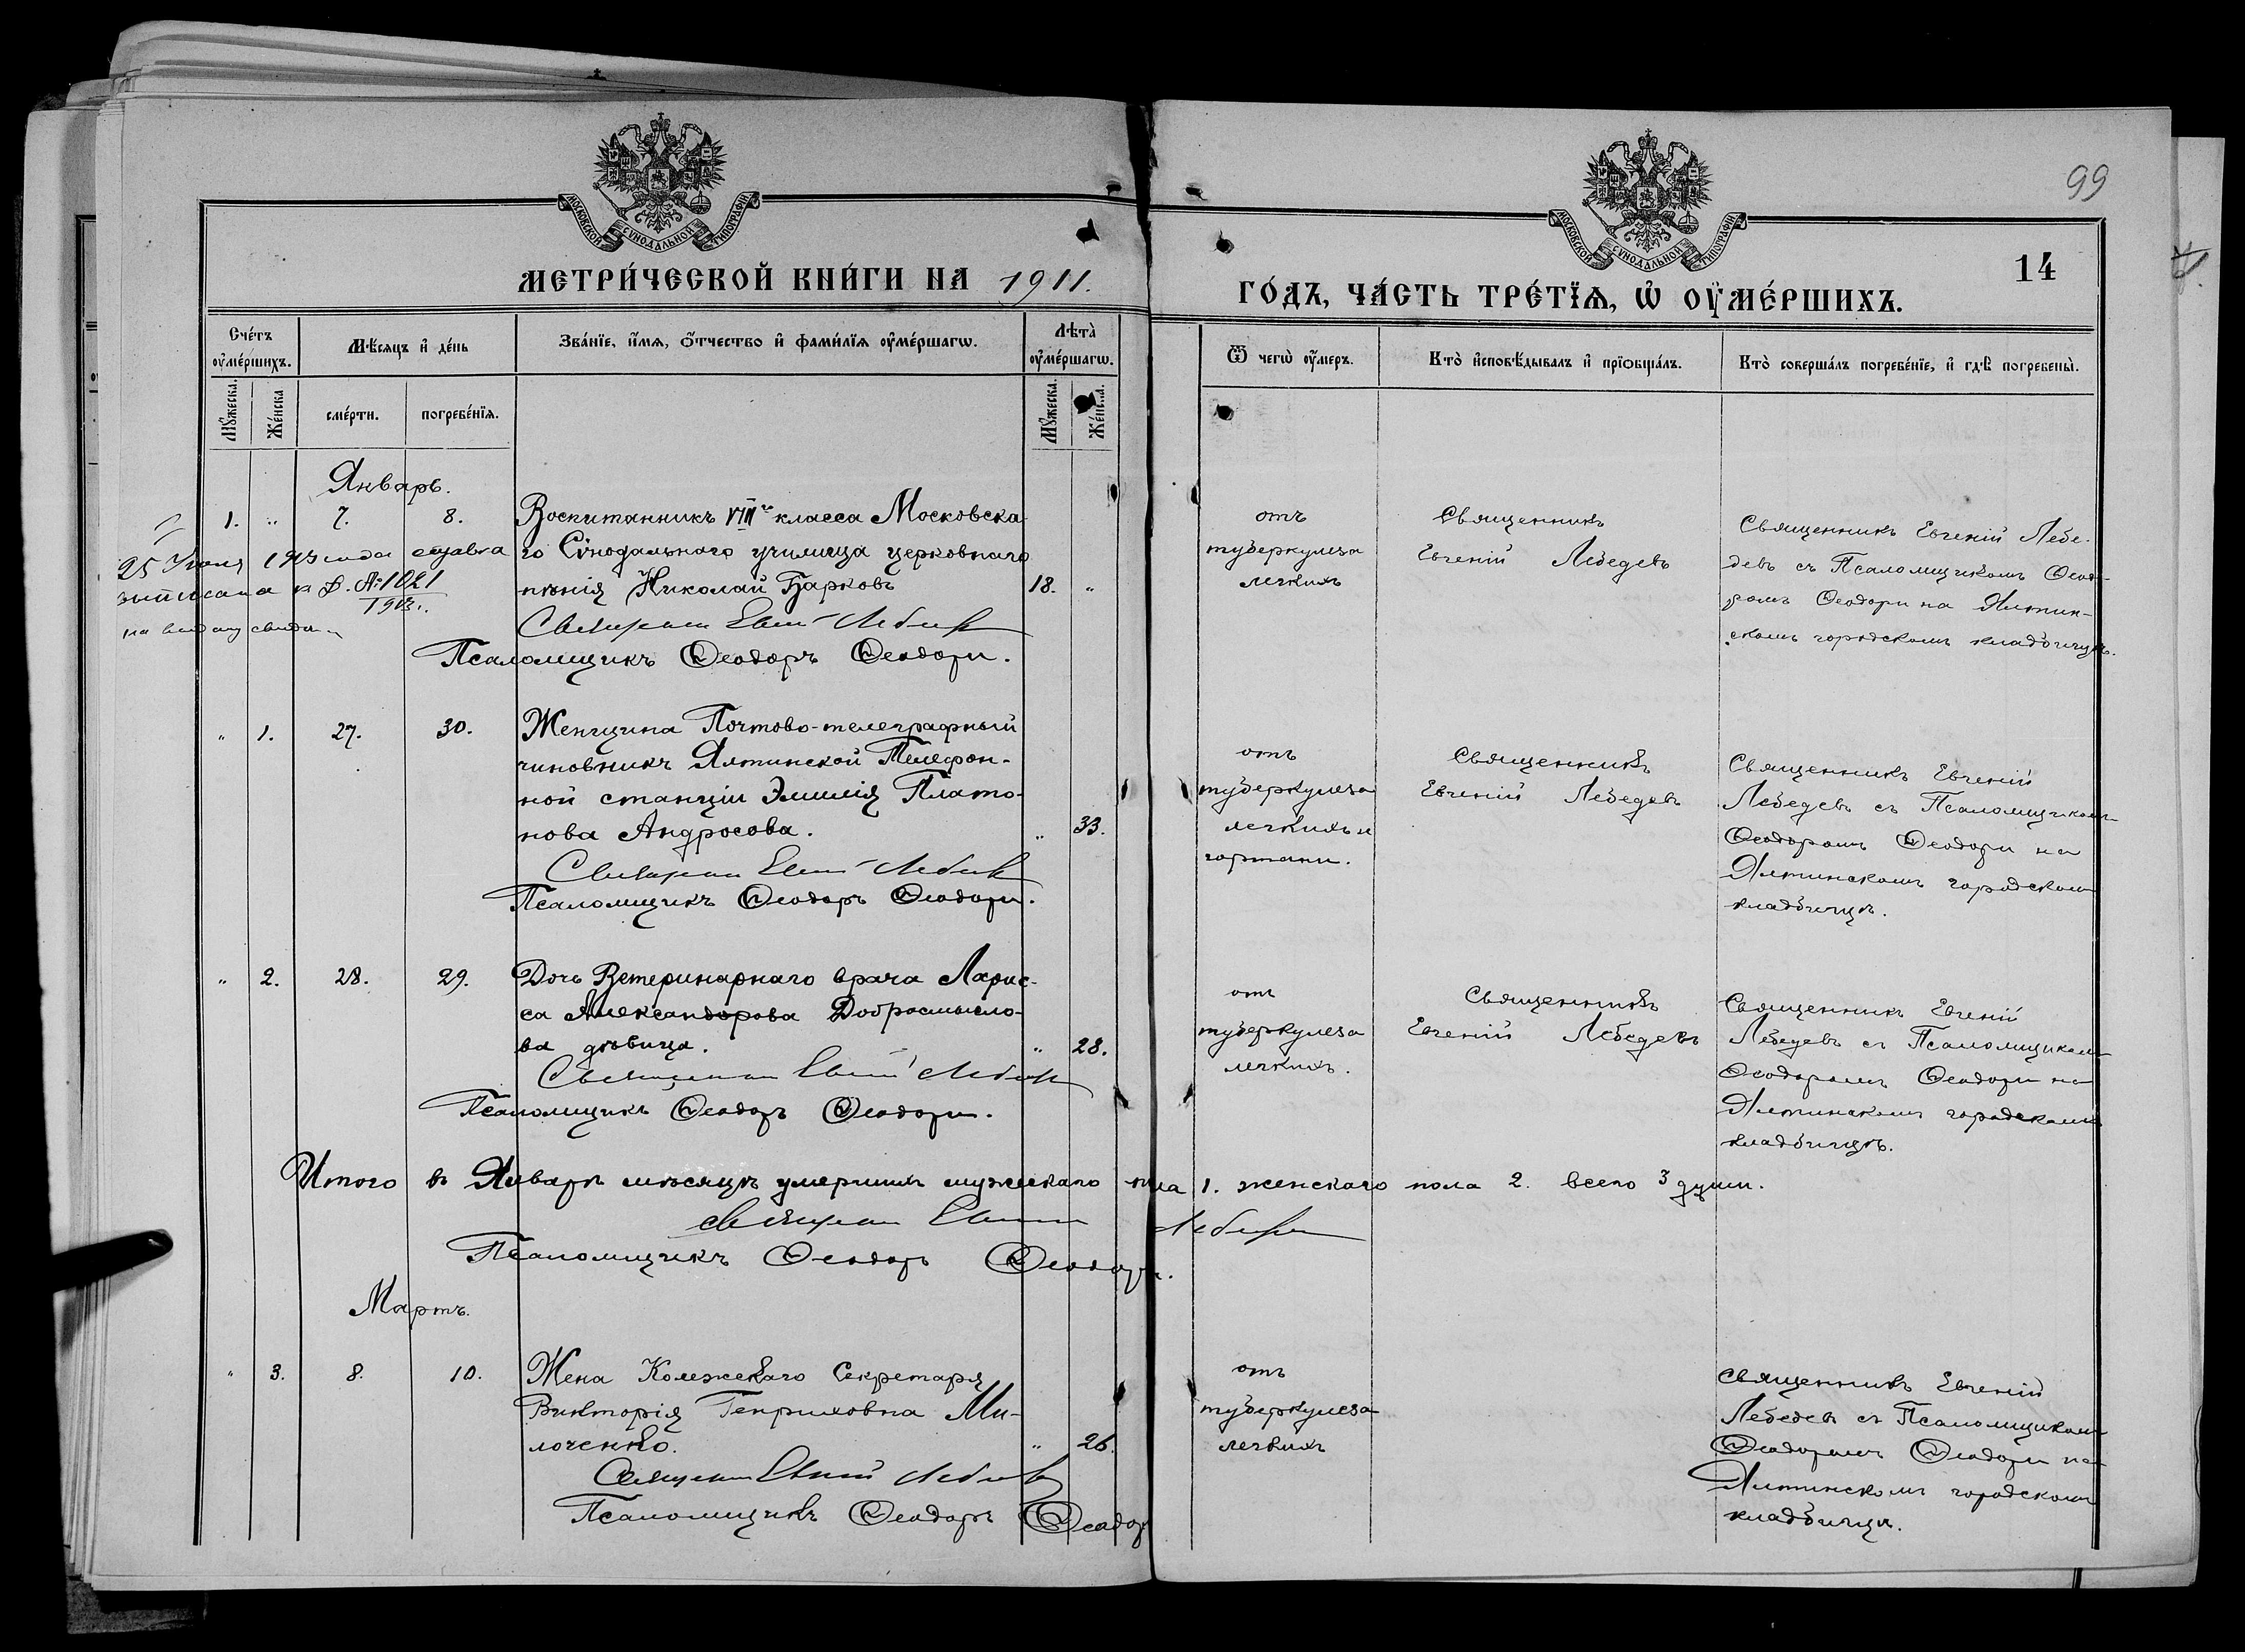 99
МОСКОВСКОЙ СѴНОДАЛЬНОЙ ТИПОГРАФІИ
МОСКОВСКОЙ СѴНОДАЛЬНОЙ ТИПОГРАФІИ
14
МЕТРИ́ЧЕСКОЙ КНИ́ГИ НА 1911.
ГО́ДЪ, ЧА́СТЬ ТРЕ́ТЇѦ, Ѡ҆ ОУ҆МЕ́РШИХЪ.
Сче́тъ оу҆ме́ршихъ.
Мѣ́сѧцъ и҆ де́нь
Зва́нїе, и҆́мѧ, ѻ҆́тчество и҆ фами́лїѧ оу҆ме́ршагѡ.
Лѣта̀ оу҆ме́ршагѡ.
Ѿ чегѡ̀ оу҆́меръ.
Кто̀ и҆сповѣ́дывалъ и҆ прїѡбща́лъ.
Кто̀ соверша́лъ погребе́нїе, и҆ гдѣ̀ погребены̀.
Мꙋ́жеска.
Же́нска
сме́рти.
погребе́нїѧ.
Мꙋ́жеска.
Же́нска.
Январь.
1. " 7. 8.
Воспитанникъ VIII го класса Московска-
го Сѵнодальнаго училища церковнаго
пѣнія Николай Барковъ 18. "
Священник Евгеній Лебедев
Псаломщикъ Ѳеодоръ Ѳеодори.
25 1913 года справка
выписана № 1021
1913
на выдачу
отъ
туберкулеза
легкихъ
Священникъ
Евгеній Лебедевъ
Священникъ Евгеній Лебе-
девъ съ Псаломщикомъ Ѳеодо-
ромъ Ѳеодори на Ялтин-
скомъ городскомъ кладбищѣ.
" 1. 27. 30.
Женщина Почтово-телеграфный
чиновникъ Ялтинской Телефон-
ной станціи Эмилія Плато-
нова Андросова. " 33.
Священник Евгеній Лебедев
Псаломщикъ Ѳеодоръ Ѳеодори.
отъ
туберкулеза
легкихъ и
гортани.
Священникъ
Евгеній Лебедевъ
Священникъ Евгеній
Лебедевъ съ Псаломщикомъ
Ѳеодоромъ Ѳеодори на
Ялтинскомъ городскомъ
кладбищѣ.
" 2. 28. 29.
Дочь Ветеринарнаго врача Ларис-
са Александрова Добросмысло-
ва дѣвица. " 28.
Священник Евгеній Лебедев
Псаломщикъ Ѳеодоръ Ѳеодори.
отъ
туберкулеза
легкихъ.
Священникъ
Евгеній Лебедевъ
Священникъ Евгеній
Лебедевъ съ Псаломщикомъ
Ѳеодоромъ Ѳеодори на
Ялтинскомъ городскомъ
кладбищѣ.
Итого въ Январѣ мѣсяцѣ умершихъ мужескаго пола 1. женскаго пола 2. всего 3 души.
Священник Евгеній Лебедев
Псаломщикъ Ѳеодоръ Ѳеодори.
Мартъ.
" 3. 8. 10.
Жена Колежскаго Секретаря
Викторія Генриховна Ми-
лоченко. " 26.
Священник Евгеній Лебедев
Псаломщикъ Ѳеодоръ Ѳеодор
отъ
туберкулеза
легкихъ
Священникъ Евгеній
Лебедевъ съ Псаломщикомъ
Ѳеодоромъ Ѳеодори на
Ялтинскомъ городскомъ
кладбищѣ.